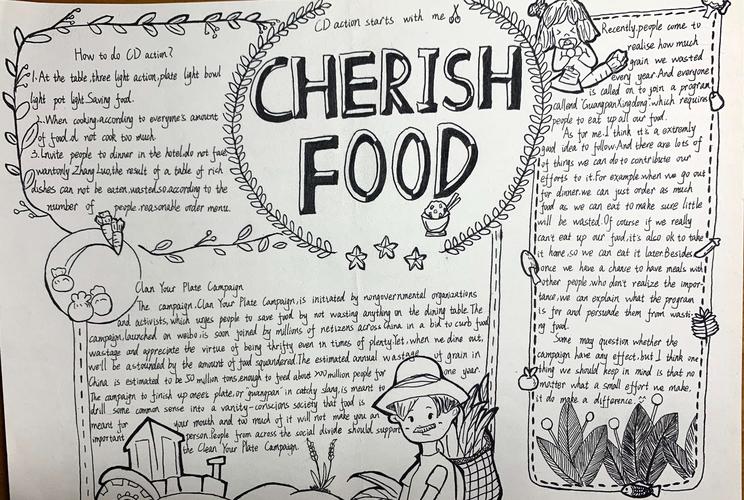 CD action starts with me
CHERISH
FOOD
How to do CD action?
1.At the table,three light action,plate light bowl
light pot light.Saving food.
2.When cooking,according to everyone's amount
of food.d not cook too much.
3.Invite people to dinner in the hotel,do not
wantonly Zhang Luo,the result of a table of rich
dishes can not be eaten,wasted,so,according to the
number of people,reasonable order menu.
Clan Your Plate Campaign
The campaign,Clan Your Plate Campaign,is initiated by nongovernmental organizations
and activists,which urges people to save food by not wasting anything on the dining table.The
campaign,launched on weibo,is soon joined by millions of netizens across China in a bid to curb food
wastage and appreciate the virtue of being thrifty even in times of plenty.let,when we dine out,
we'll be astounded by the amount of food squandered.The estimated annual wastage of grain in
China is estimated to be 50 million tons,enough to feed about 200 million people for one year.
The campaign to finish up one's plate,or "guangpan" in catchy slang,is meant to
drill some common sense into a vanity-conscions society that food is
meant for your mouth and too much of it will not make you an
important person.People from across the social divide should support
the Clean Your Plate Campaign.
Recently,people come to
realise how much
grain we wasted
every year.And everyone
is called on to join a program
callend "Guangpankingdong",which requires
people to eat up all our food.
As for me.I think it's a extremly
good idea to follow.And there are lots of
of things we can do to contribute our
efforts to it.For example.when we go out
for dinner.we can just order as much
food as we can eat to make sure little
will be wasted.Of course if we really
can't eat up our food,it's also ok to take
it home,so we can eat it later.Besides
once we have a chance to have meals with
other people who don't realize the impor-
tance,we can explain what the program
is for and persuade them from wasti-
ng food.
Some may question whether the
campaign have any effect.but I think one
thing we should keep in mind is that no
matter what a small effort we make,
it do make a difference.